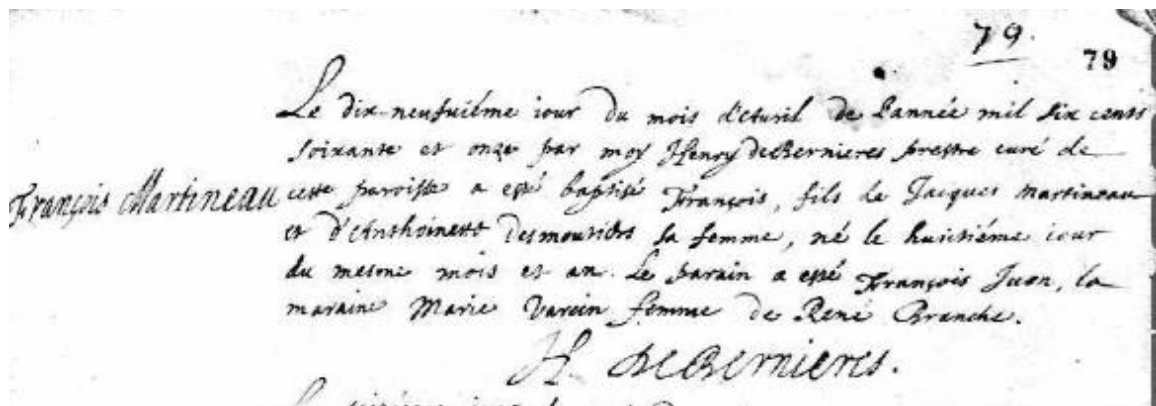 79.
79
Le dix-neufuiéme iour du mois d'Auril de l'année mil six cents
soixante et onze par moy Henry de Bernieres prestre curé de
François Martineau
cette paroisse a esté baptisé François, fils de Jacques Martineau
et d'Anthoinette Desmoutiers sa femme, né le huictiéme iour
du mesme mois et an. Le parain a esté François Juon, la
maraine Marie Varcin femme de René Branche.
H. de Bernieres.